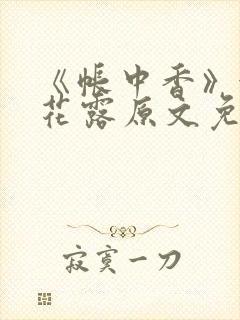 《帐中香》
花露原文免
寂寞一刀